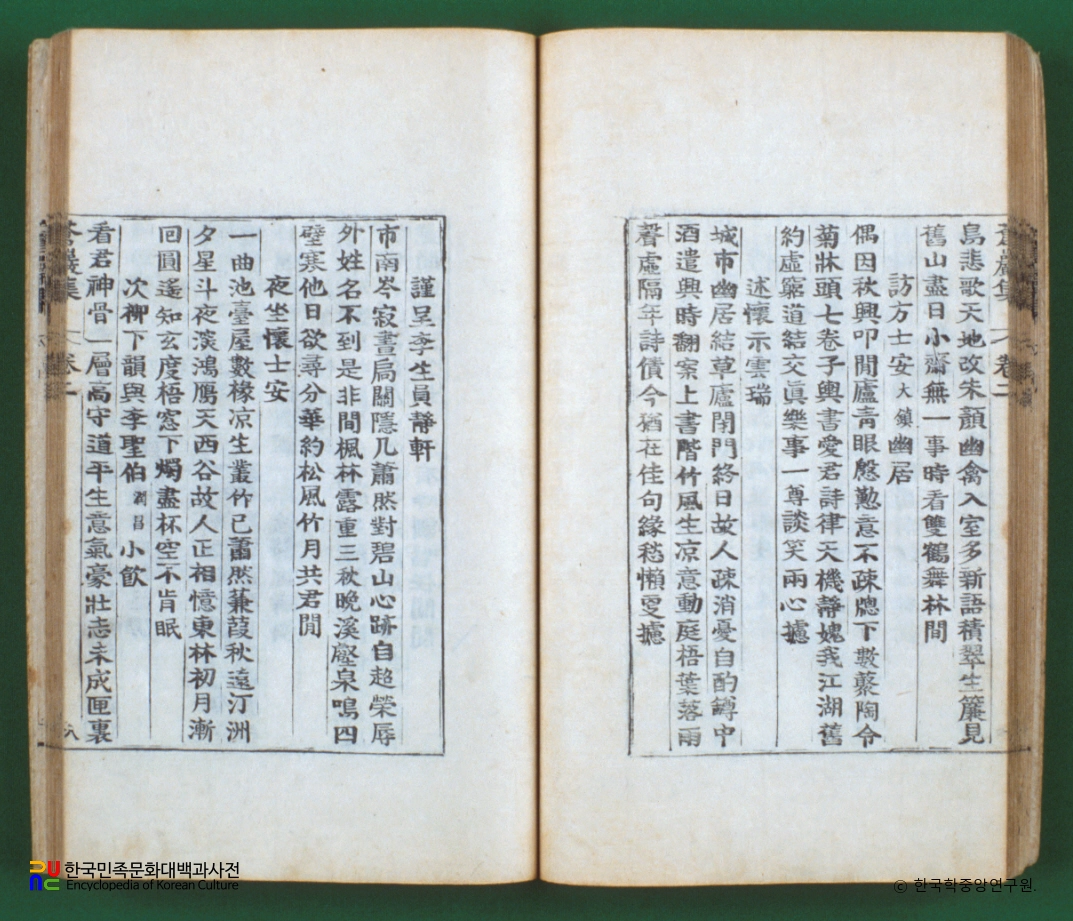 蒼巖集 卷二
島悲歌天地改朱顔幽禽入室多新語積翠生簾見
舊山盡日小齋無一事時看雙鶴舞林間
訪方士安大鎭幽居
偶因秋興叩閒廬靑眼慇懃意不疎牕下數藂陶令
菊牀頭七卷子輿書愛君詩律天機靜媿我江湖舊
約虛窮道結交眞樂事一尊談笑兩心攄
述懷示雲瑞
城市幽居結草廬閉門終日故人疎消憂自酌罇中
酒遣興時翻案上書階竹風生凉意動庭梧葉落雨
聲虛隔年詩債今猶在佳句緣愁懶更攄
謹呈李生員靜軒
市南岑寂晝扃關隱几蕭然對碧山心跡自超榮辱
外姓名不到是非間楓林露重三秋晩溪壑泉鳴四
壁寒他日欲尋分華約松風竹月共君閒
夜坐懷士安
一曲池臺屋數椽凉生叢竹已蕭然蒹葭秋遠汀洲
夕星斗夜淡鴻鴈天西谷故人正相憶東林初月漸
回圓遙知玄度梧窓下燭盡杯空不肯眠
次柳下韻與李聖伯 昌 小飮
看君神骨一層高守道平生意氣豪壯志未成匣裏
蒼巖集 卷二 八
한국민족문화대백과사전
Encyclopedia of Korean Culture
© 한국학중앙연구원.